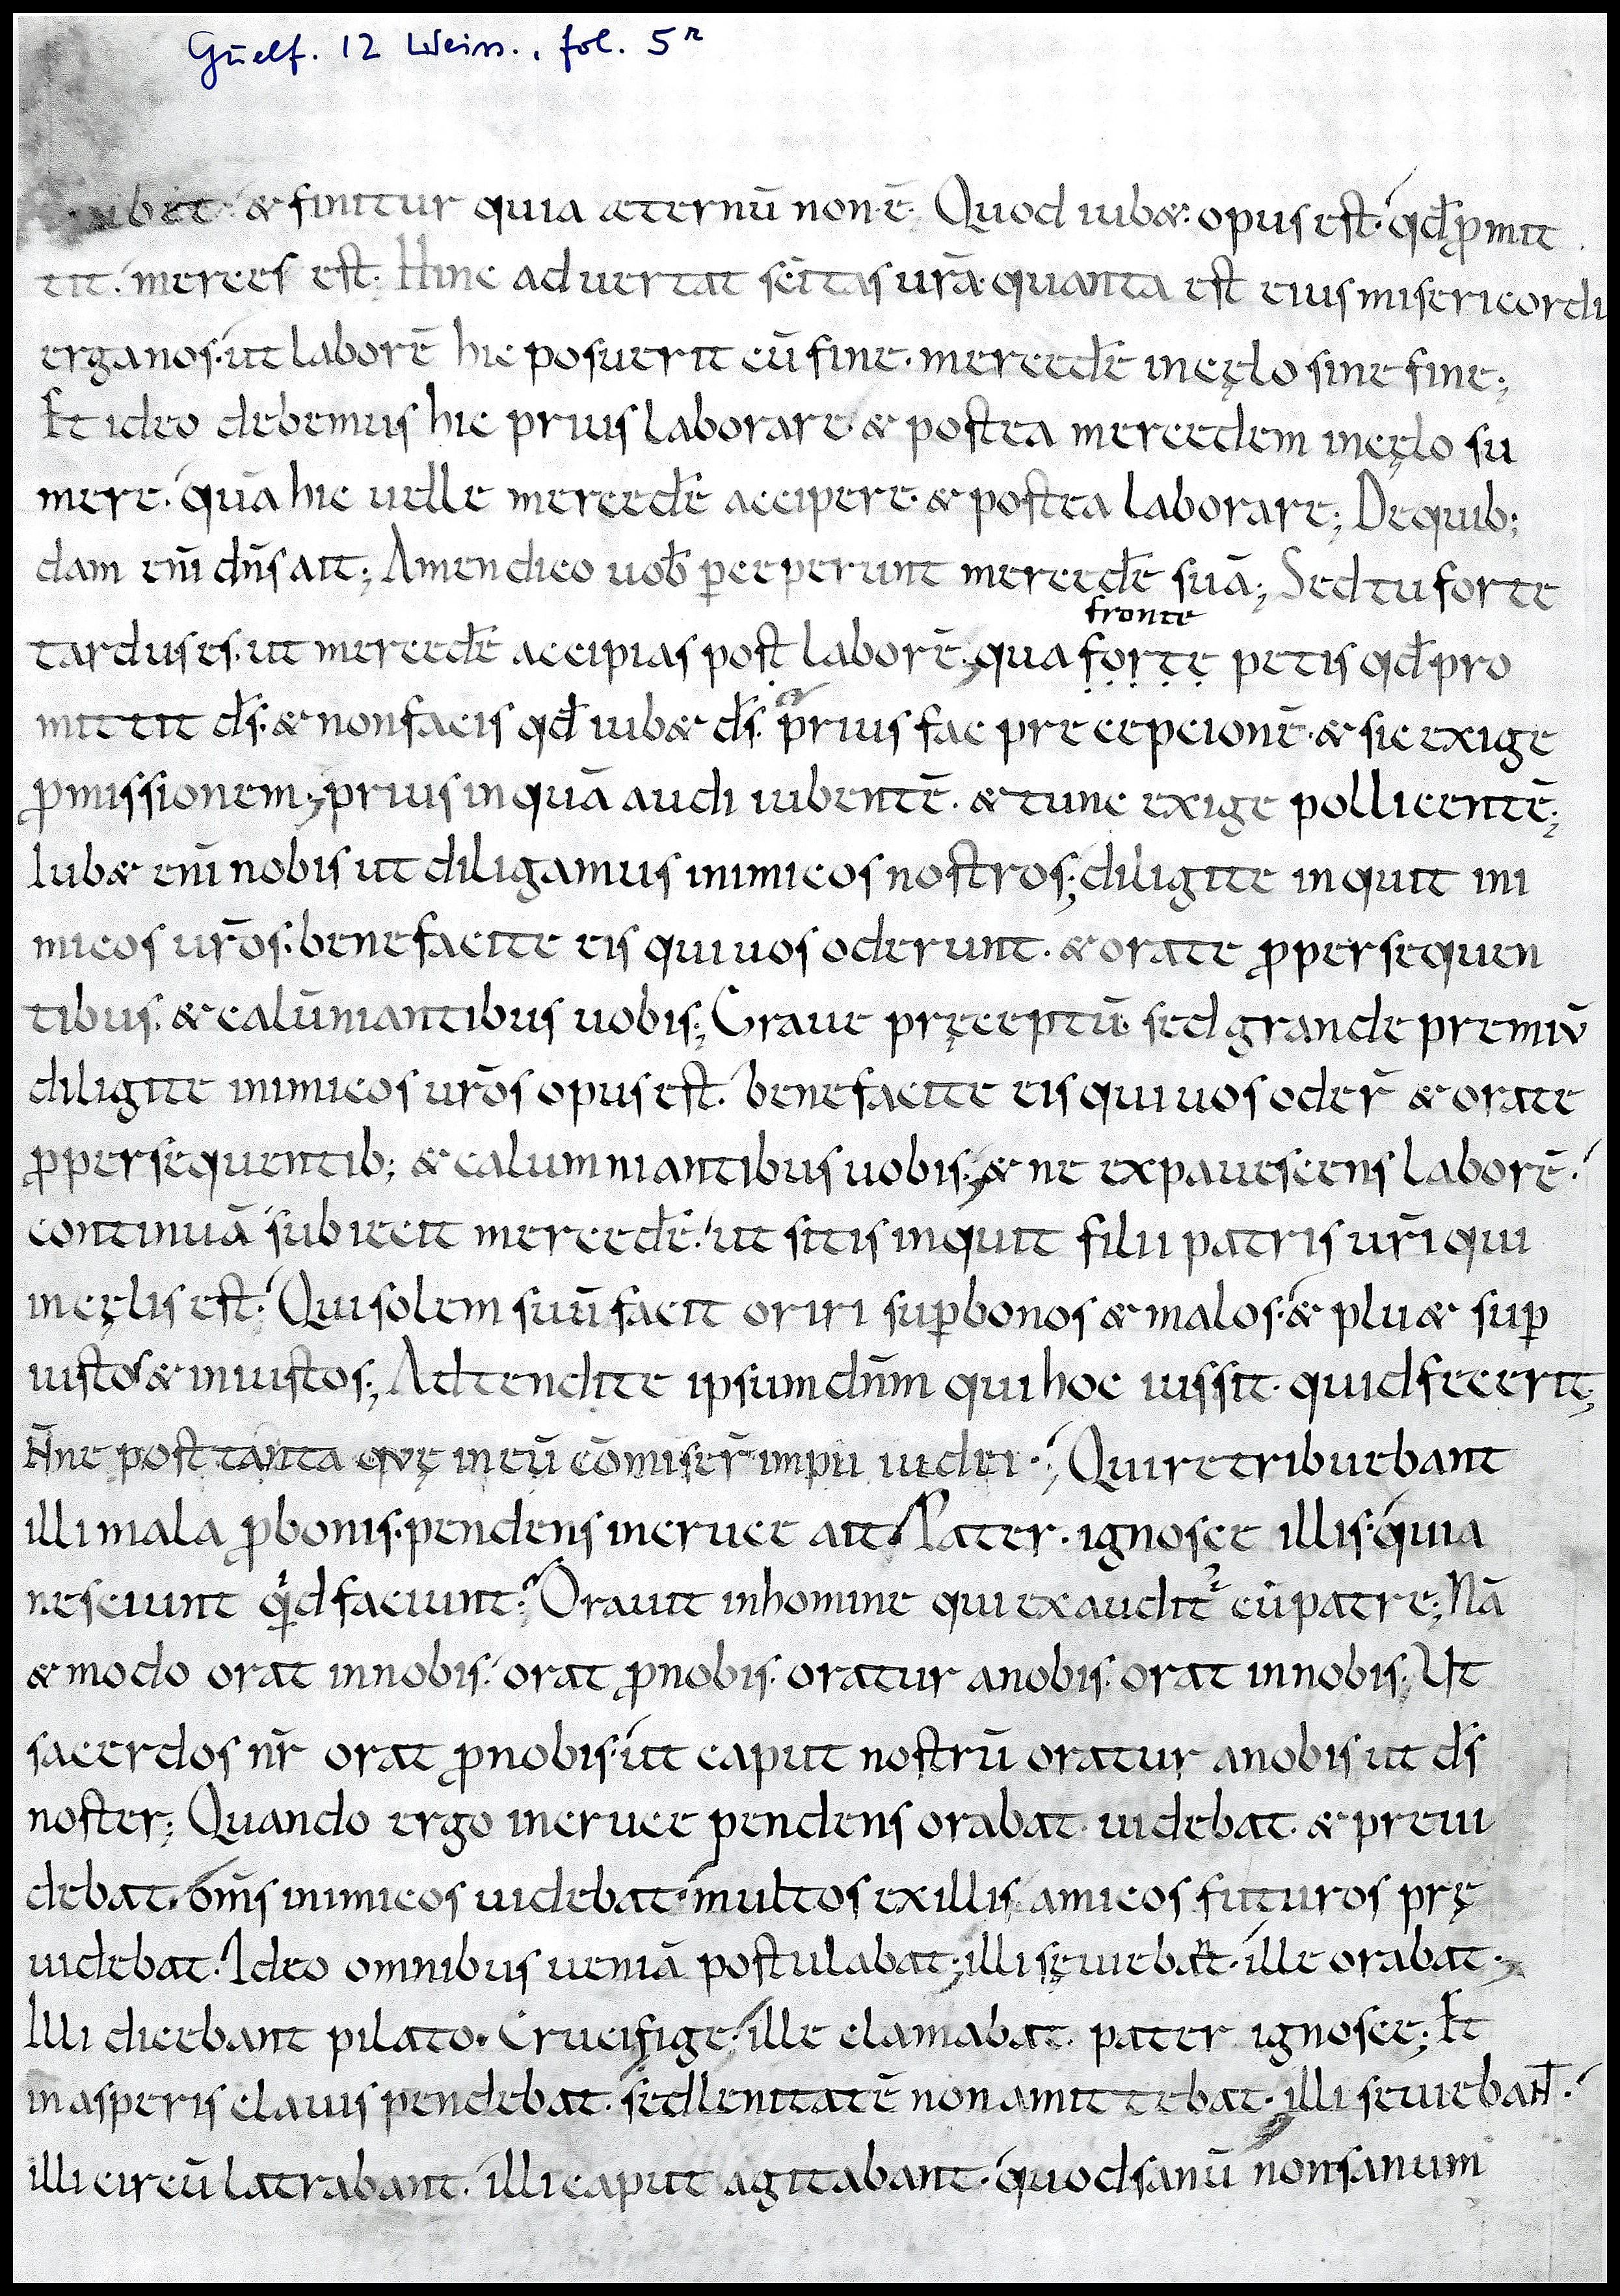 Guelf. 12 Weiss., fol. 5r
iubet & finitur quia aeternū non ē. Quod iub&. opus est. qđ ꝓmit
tit. merces est. Hinc aduertat sc̄itas ur̄a. quanta est eius misericordi
erga nos. ut laborē hic posuerit cū fine. mercedē in cęlo sine fine;
Et ideo debemus hic prius laborare & postea mercedem in cęlo su
mere. quā hic uelle mercedē accipere. & postea laborare; De quib;
dam eni dn̄s ait; Amen dico uob̄ ꝑceperunt mercedē suā; Sed tu forte
fronte
tardus es. ut mercedē accipias post laborē; qua forte petis qđ pro
mittit d̄s. & non facis qđ iub& d̄s. prius fac precepcionē. & sic exige
ꝓmissionem; prius inquā audi iubentē. & tunc exige pollicentē;
Iub& eni nobis ut diligamus inimicos nostros; diligite inquit ini
micos ur̄os. benefacite eis qui uos oderunt. & orate ꝓ persequen
tibus. & calūniantibus uobis; Graue pręceptū sed grande premiū
diligite inimicos ur̄os opus est. benefacite eis qui uos oder̄ & orate
ꝓ persequentib; & calumniantibus uobis; & ne expauescens laborē.
continuā subiecit mercedē. ut sitis inquit filii patris ur̄i qui
in cęlis est. Qui solem suū facit oriri suꝑ bonos & malos. & plu& suꝑ
iustos & iniustos; Adtendite ipsum dn̄m qui hoc iussit. quid fecerit;
N̄ne post tanta quę in eū cōmiser̄ impii iudei.; Qui retribuebant
illi mala ꝓ bonis. pendens in cruce ait. Pater. ignosce illis. quia
nesciunt qid faciunt. Orauit in homine qui exaudit cū patre; Nā
& modo orat in nobis. orat ꝓ nobis. oratur a nobis. orat in nobis; Ut
sacerdos nr̄ orat ꝓ nobis. ut caput nostrū oratur a nobis ut d̄s
noster; Quando ergo in cruce pendens orabat. uidebat. & preui
debat. om̄s inimicos uidebat. multos ex illis amicos futuros prę
uidebat. Ideo omnibus ueniā postulabat; illi sęuiebant. ille orabat.;
Illi dicebant pilato. Crucifige. ille clamabat. pater ignosce; Et
in asperis clauis pendebat. sed lenitatē non amittebat. illi seuiebant.
illi circū latrabant. illi caput agitabant. quod sanū non sanum